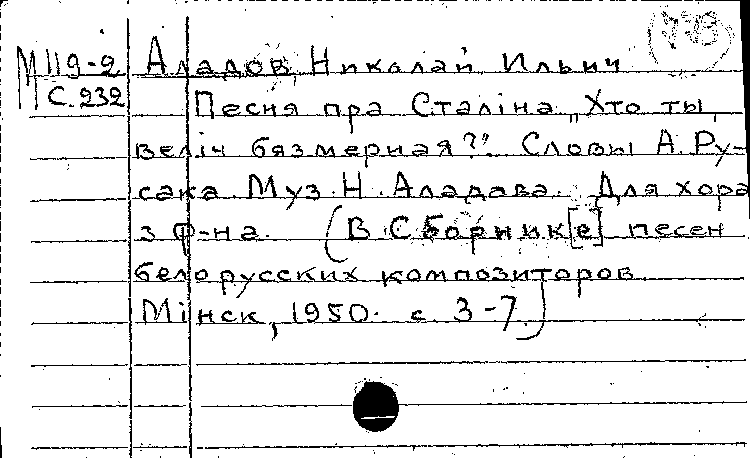 М119-2 Аладов Николай Ильич
С.232 Песня пра Сталіна „Хто ты,
веліч бязмерная?". Словы А. Ру-
сака. Муз. Н. Аладава. Для хора
з ф-на. (В Сборник[е] песен
белорусских композиторов.
Мінск, 1950. с. 3-7.)